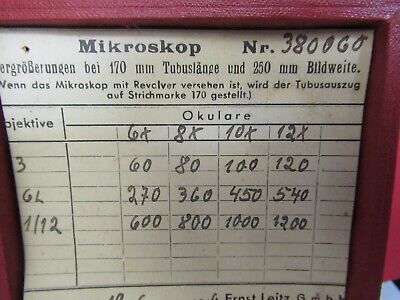 Mikroskop Nr. 380060
ergrößerungen bei 170 mm Tubuslänge und 250 mm Bildweite.
Wenn das Mikroskop mit Revolver versehen ist, wird der Tubusauszug
auf Strichmarke 170 gestellt.)
bjektive Okulare
6x 8x 10x 12x
3 60 80 100 120
6L 270 360 450 540
1/12 600 800 1000 1200
Ernst Leitz G m b